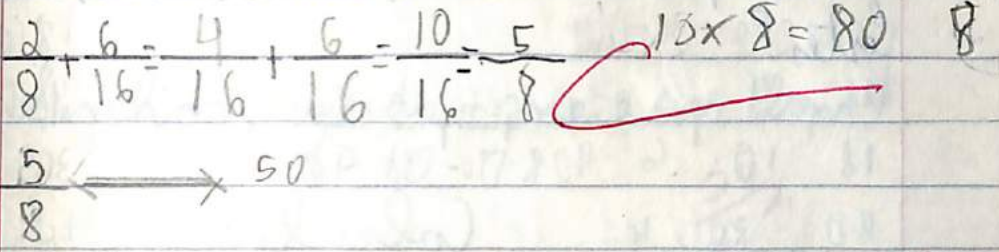 2/8 + 6/16 = 4/16 + 6/16 = 10/16 = 5/8 10 x 8 = 80 8
5/8 ⟷ 50